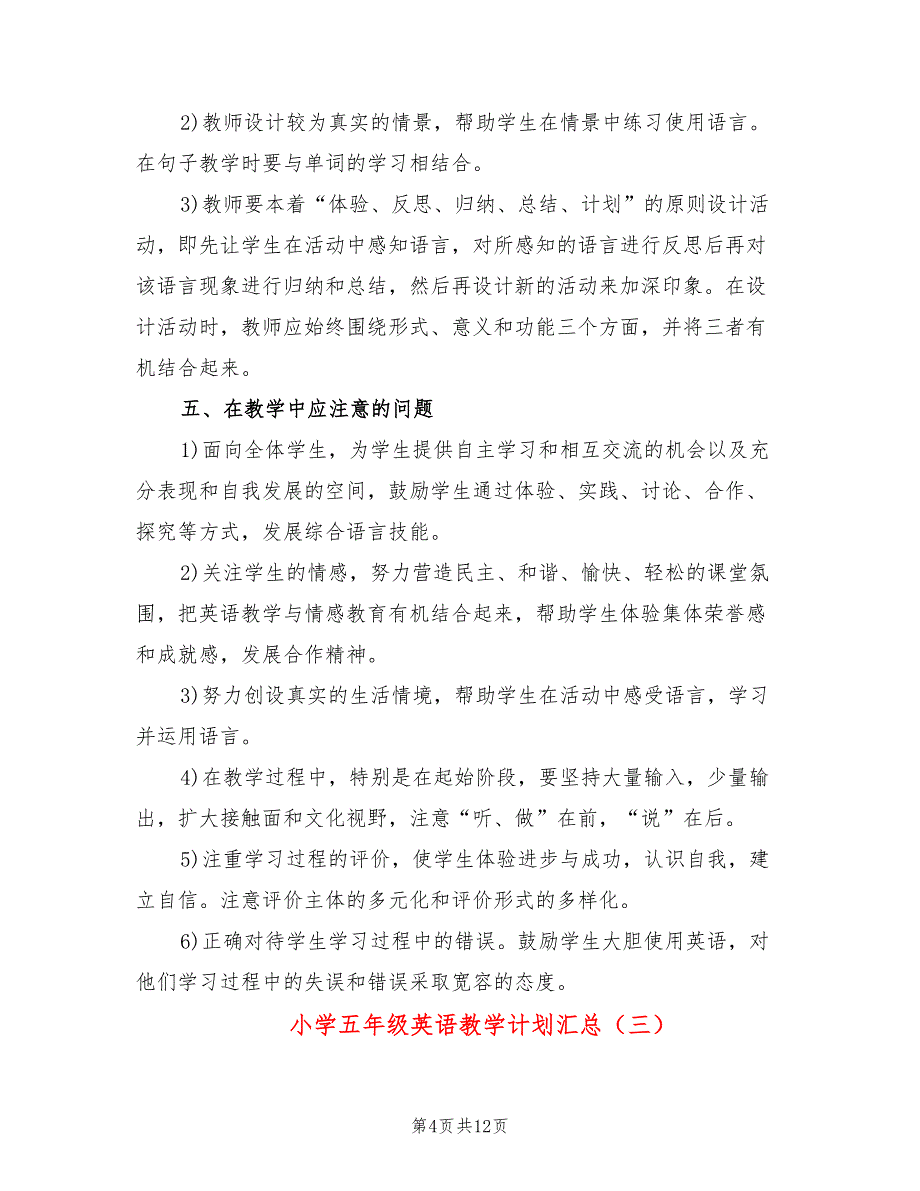 2)教师设计较为真实的情景，帮助学生在情景中练习使用语言。
在句子教学时要与单词的学习相结合。
3)教师要本着“体验、反思、归纳、总结、计划”的原则设计活
动，即先让学生在活动中感知语言，对所感知的语言进行反思后再对
该语言现象进行归纳和总结，然后再设计新的活动来加深印象。在设
计活动时，教师应始终围绕形式、意义和功能三个方面，并将三者有
机结合起来。
五、在教学中应注意的问题
1)面向全体学生，为学生提供自主学习和相互交流的机会以及充
分表现和自我发展的空间，鼓励学生通过体验、实践、讨论、合作、
探究等方式，发展综合语言技能。
2)关注学生的情感，努力营造民主、和谐、愉快、轻松的课堂氛
围，把英语教学与情感教育有机结合起来，帮助学生体验集体荣誉感
和成就感，发展合作精神。
3)努力创设真实的生活情境，帮助学生在活动中感受语言，学习
并运用语言。
4)在教学过程中，特别是在起始阶段，要坚持大量输入，少量输
出，扩大接触面和文化视野，注意“听、做”在前，“说”在后。
5)注重学习过程的评价，使学生体验进步与成功，认识自我，建
立自信。注意评价主体的多元化和评价形式的多样化。
6)正确对待学生学习过程中的错误。鼓励学生大胆使用英语，对
他们学习过程中的失误和错误采取宽容的态度。
小学五年级英语教学计划汇总（三）
第4页共12页